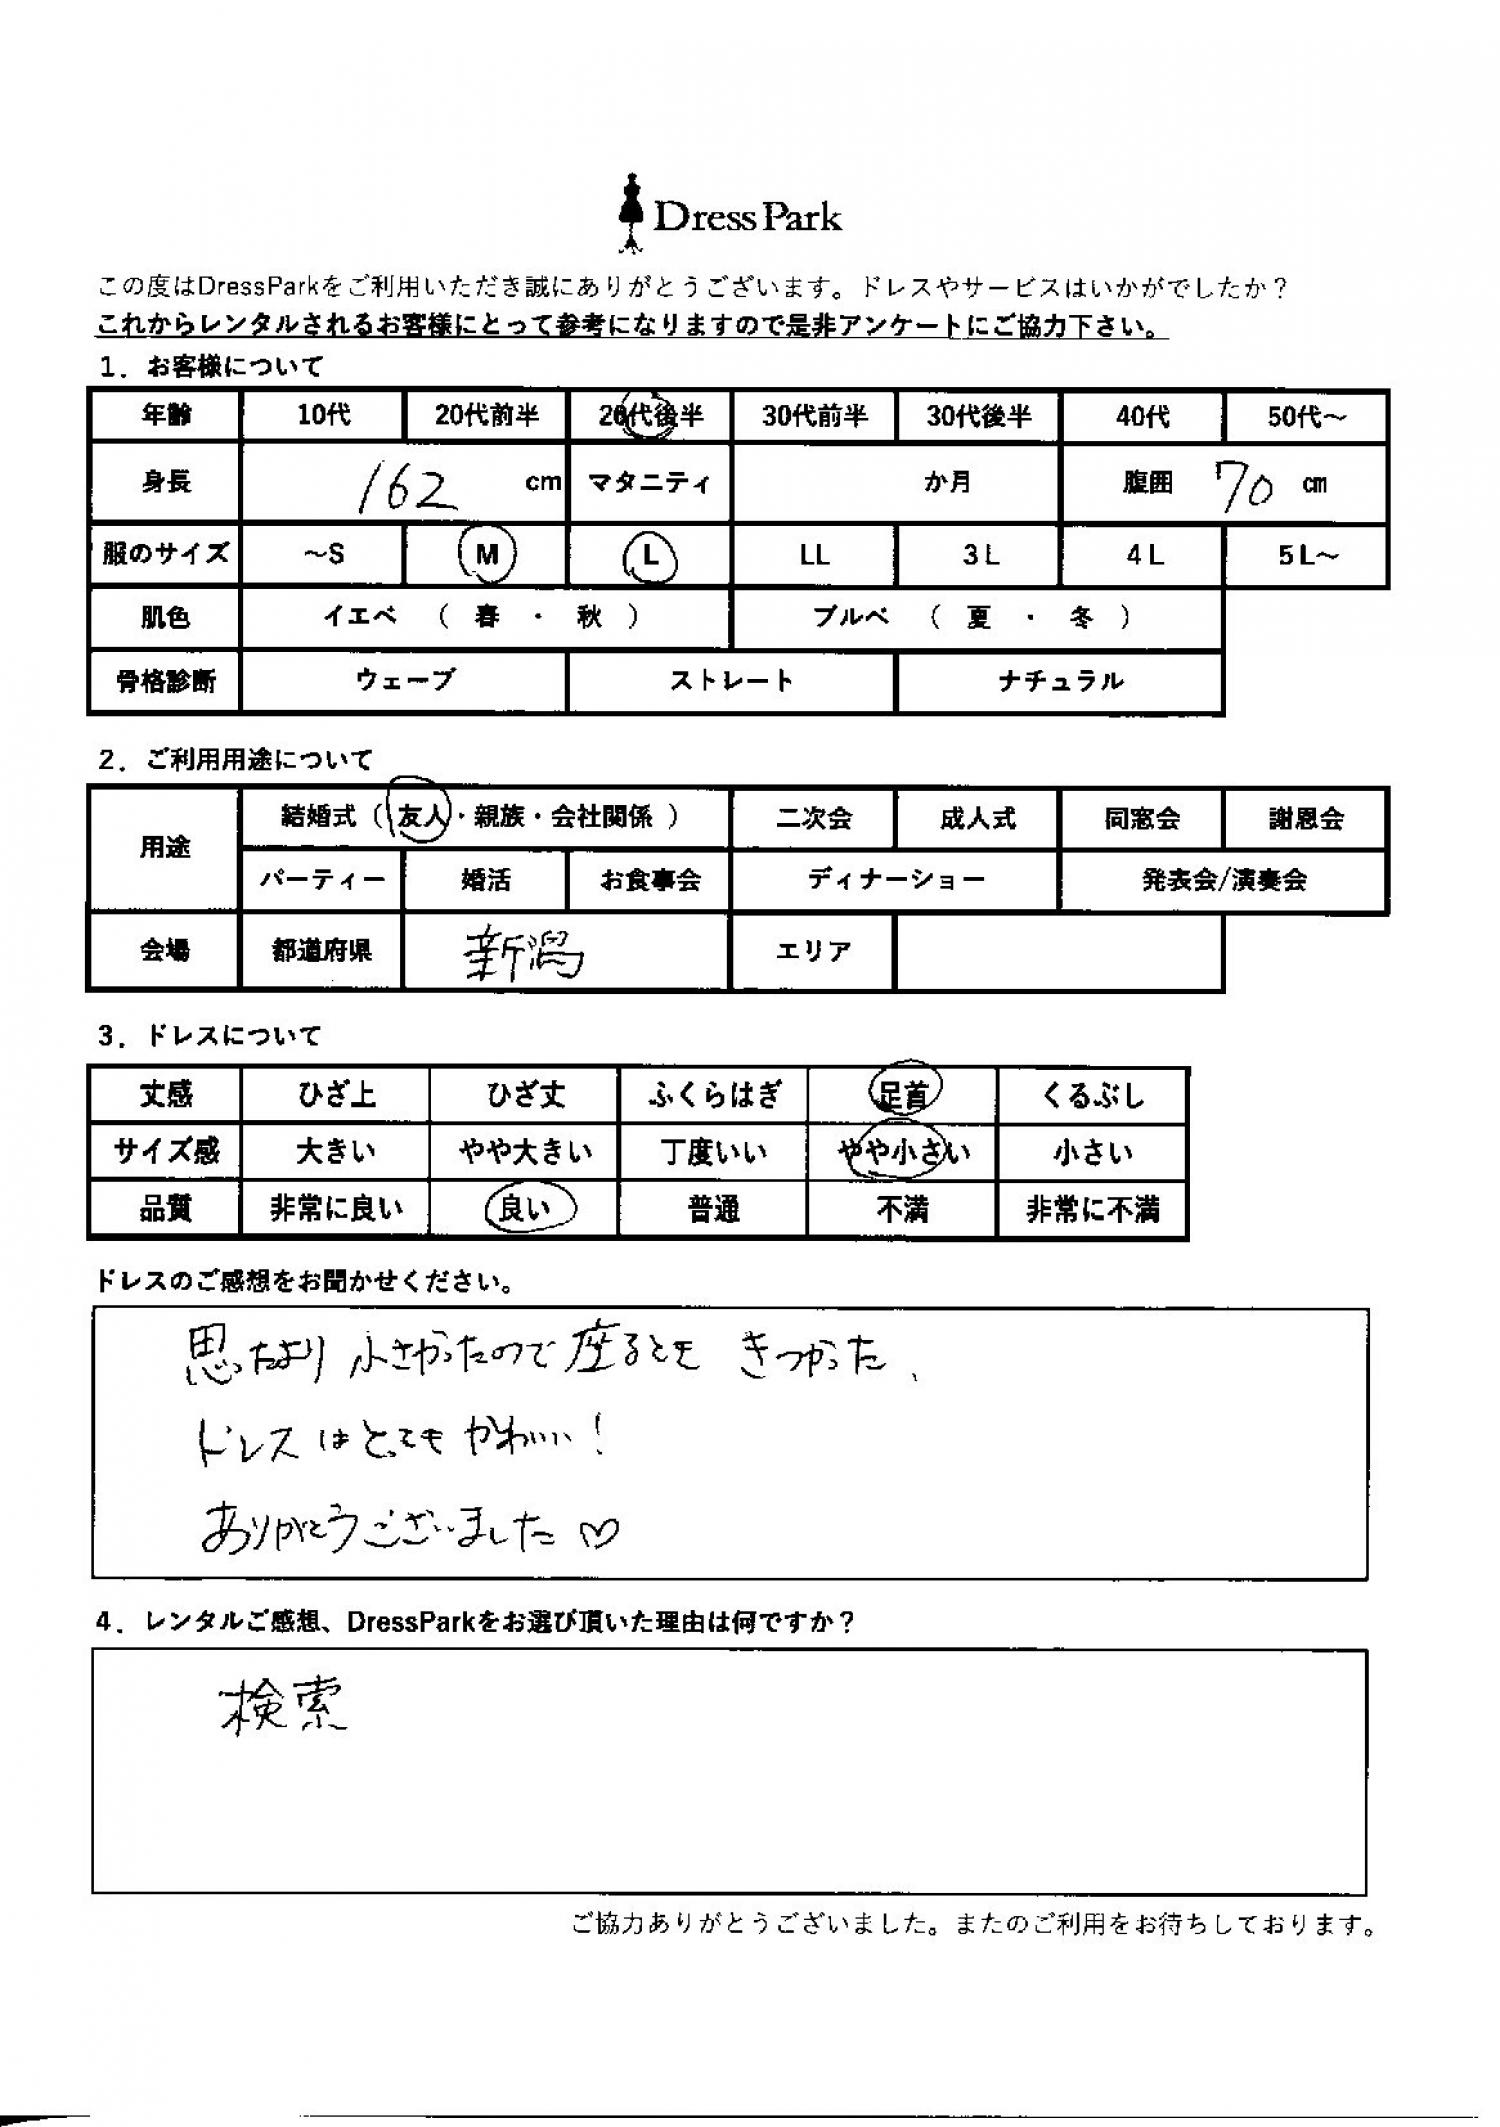 Dress Park
この度はDressParkをご利用いただき誠にありがとうございます。ドレスやサービスはいかがでしたか？
これからレンタルされるお客様にとって参考になりますので是非アンケートにご協力下さい。
1．お客様について
年齢 10代 20代前半 20代後半 30代前半 30代後半 40代 50代～
身長 162 cm マタニティ か月 腹囲 70 cm
服のサイズ ～S M L LL 3L 4L 5L～
肌色 イエベ （ 春 ・ 秋 ） ブルベ （ 夏 ・ 冬 ）
骨格診断 ウェーブ ストレート ナチュラル
2．ご利用用途について
用途 結婚式（ 友人・親族・会社関係 ） 二次会 成人式 同窓会 謝恩会
パーティー 婚活 お食事会 ディナーショー 発表会/演奏会
会場 都道府県 新潟 エリア
3．ドレスについて
丈感 ひざ上 ひざ丈 ふくらはぎ 足首 くるぶし
サイズ感 大きい やや大きい 丁度いい やや小さい 小さい
品質 非常に良い 良い 普通 不満 非常に不満
ドレスのご感想をお聞かせください。
思ったより 小さかったので 座るとき きつかった、
ドレスは とても かわいい！
ありがとうございました ♡
4．レンタルご感想、DressParkをお選び頂いた理由は何ですか？
検索
ご協力ありがとうございました。またのご利用をお待ちしております。